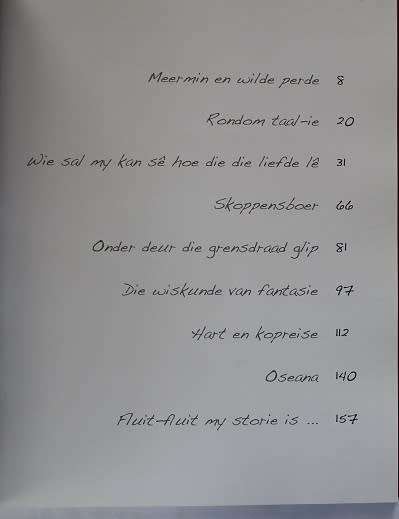 Meermin en wilde perde 8
Rondom taal-ie 20
Wie sal my kan sê hoe die die liefde lê 31
Skoppensboer 66
Onder deur die grensdraad glip 81
Die wiskunde van fantasie 97
Hart en kopreise 112
Oseana 140
Fluit-fluit my storie is ... 157